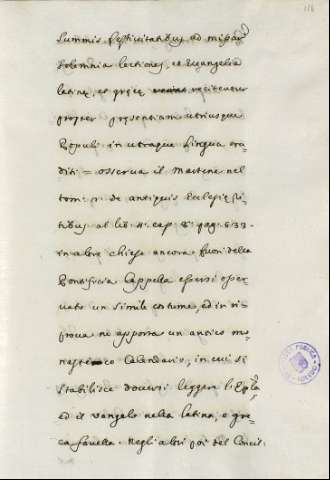 116
summis festivitatibus ad missarū
solemnia lectiones, et Evangelia
latinę, et gręcę recitentur
propter pręsentiam utriusque
Populi in utraque lingua eru-
diti = osserva il Martene nel
tom: 1. de antiquis Ecclesię Ri-
tibus al lib. 4. cap. 8. pag. 633.
in altre chiese ancora fuori della
Pontificia Cappella essersi osser-
vato un simile costume, ed in ri-
prova ne apporta un antico mo-
nastico Calendario, in cui si
stabilisce doversi leggere l'Epla
ed il vangelo nella latina, e gre-
ca favella. Negli altri poi del Concil-